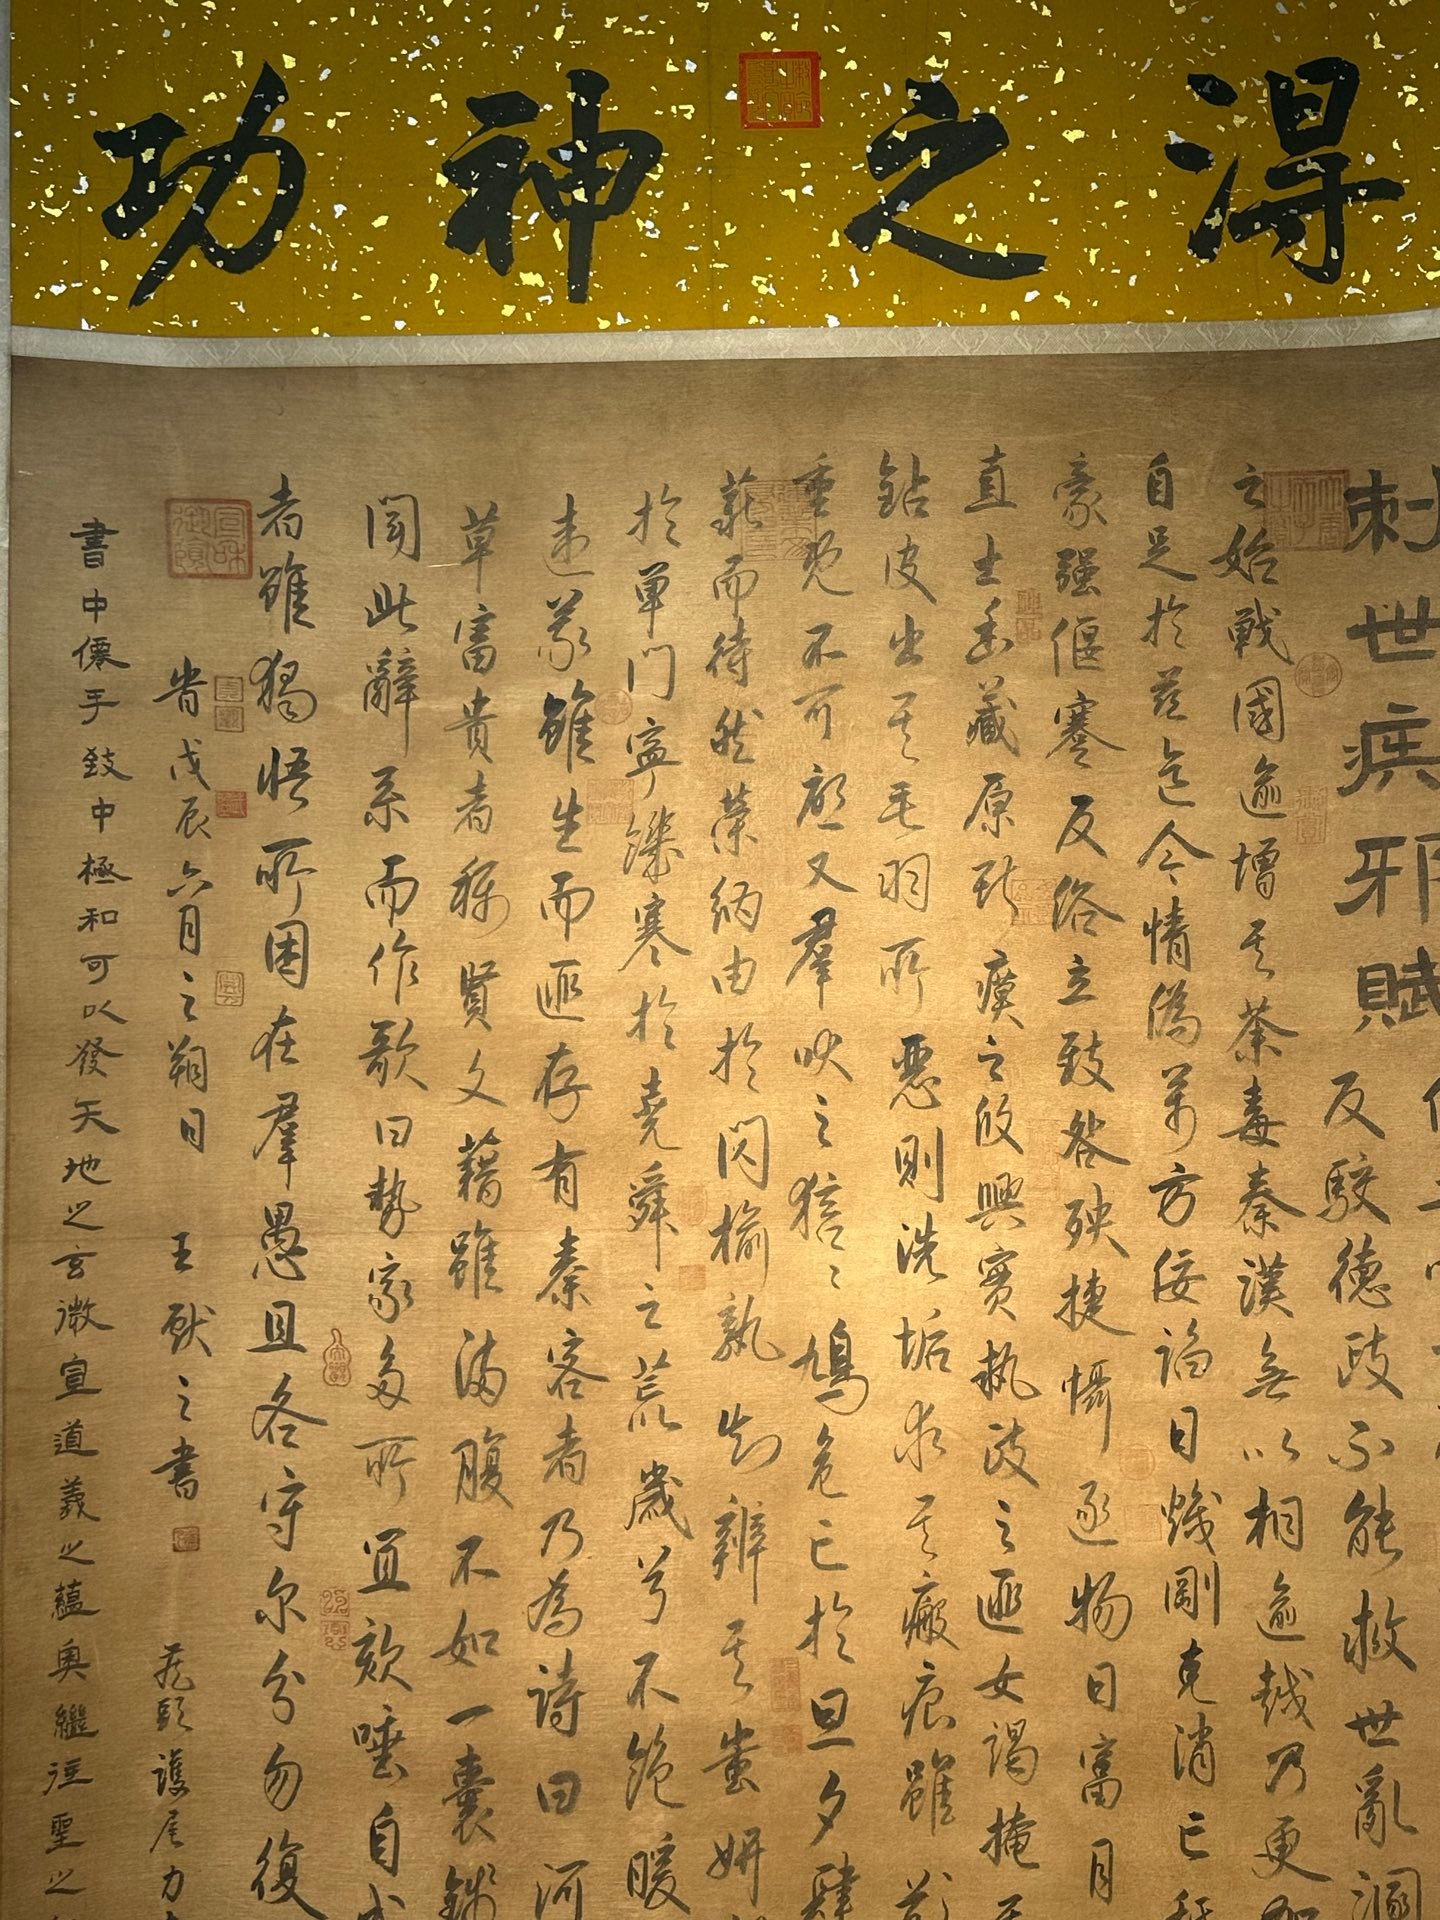 得之神功
刺世疾邪賦
反駮德政不能救世亂溷
之始戰國逾增其荼毒秦漢無以相逾越乃更加
自足於茲迄今情偽萬方佞諂日熾剛克消亡舐
豪强偃蹇反俗立致咎殃捷懾逐物日富月
直士幽藏原斯瘼之攸興寔執政之匪女謁掩其
鉆皮出其毛羽所惡則洗垢求其瘢痕雖
重既不可啟又羣吠之狺〻鳩危亡於旦夕肆
薪而待然榮納由於閃榆孰知辨其蚩妍
於單門寧饑寒於堯舜之荒歲兮不飽暖
違義雖生而匪存有秦客者乃為詩曰河
草富貴者稱賢文藉雖滿腹不如一囊錢
聞此辭系而作歌曰勢家多所宜欬唾自成
者雖獨悟所困在羣愚且各守尔分勿復
昔戊辰六月之朔日 王獻之書
護尾力
書中僊手致中極和可以發天地之玄微宣道義之蘊奧繼往聖之